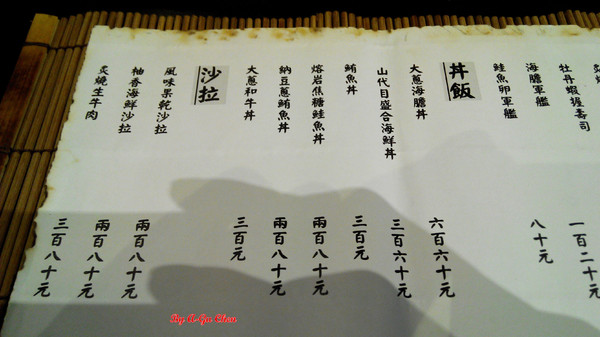 炙燒
牡丹蝦握壽司
海膽軍艦 一百二十元
鮭魚卵軍艦 八十元
丼飯
大蔥海膽丼 六百六十元
山代目盛合海鮮丼 三百六十元
鮪魚丼 三百元
熔岩焦糖鮭魚丼 兩百八十元
納豆蔥鮪魚丼 兩百八十元
大蔥和牛丼 三百元
沙拉
風味果乾沙拉 兩百八十元
柚香海鮮沙拉 兩百八十元
炙燒生牛肉 三百八十元